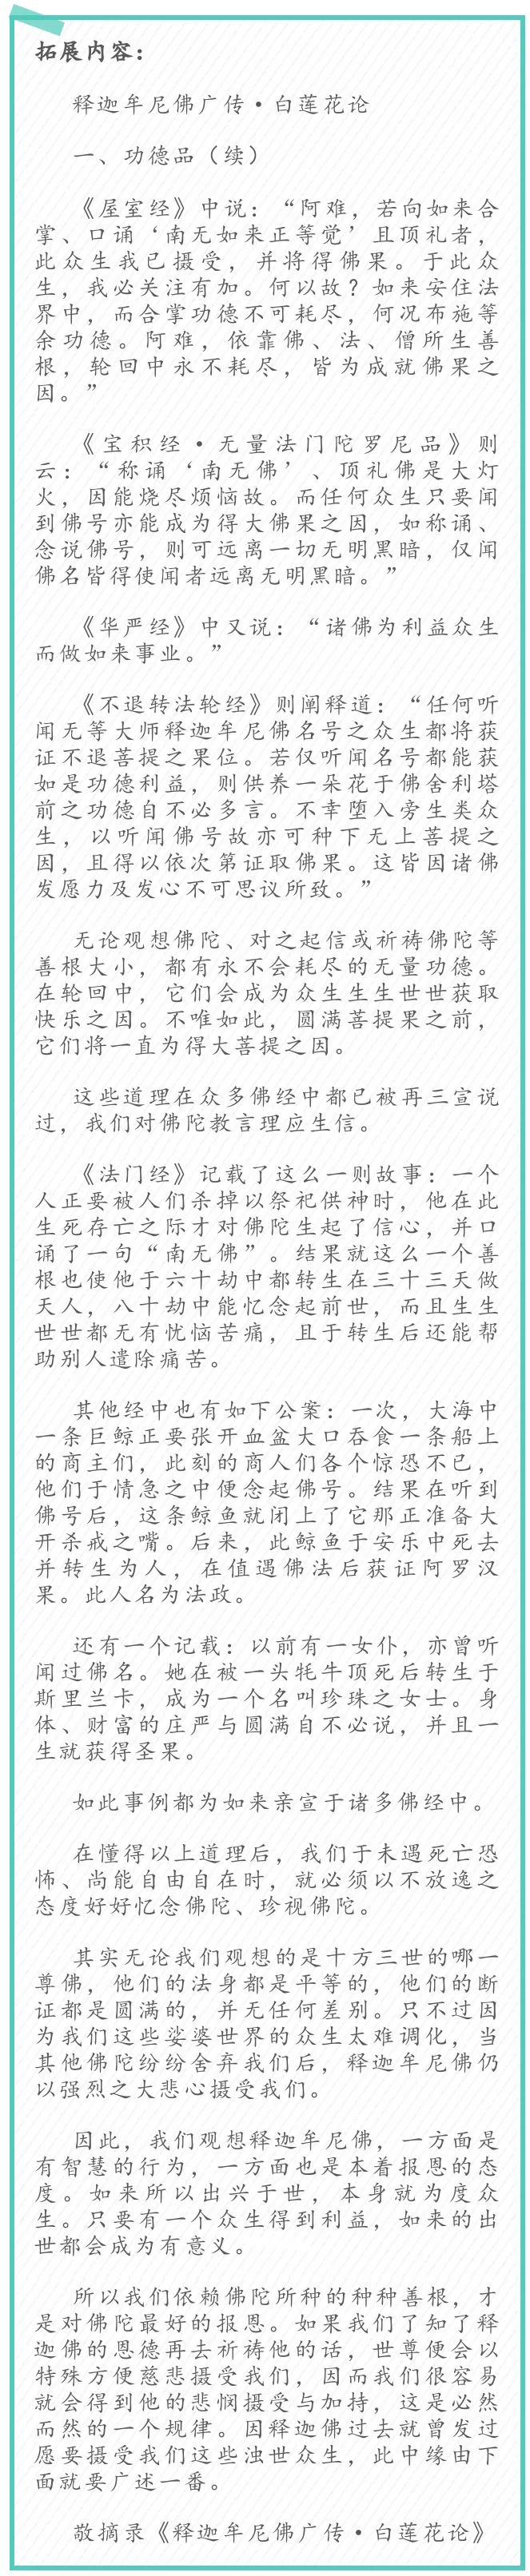 拓展内容：
释迦牟尼佛广传·白莲花论
一、功德品（续）
《屋室经》中说：“阿难，若向如来合
掌、口诵‘南无如来正等觉’且顶礼者，
此众生我已摄受，并将得佛果。于此众
生，我必关注有加。何以故？如来安住法
界中，而合掌功德不可耗尽，何况布施等
余功德。阿难，依靠佛、法、僧所生善
根，轮回中永不耗尽，皆为成就佛果之
因。”
《宝积经·无量法门陀罗尼品》则
云：“称诵‘南无佛’、顶礼佛是大灯
火，因能烧尽烦恼故。而任何众生只要闻
到佛号亦能成为得大佛果之因，如称诵、
念说佛号，则可远离一切无明黑暗，仅闻
佛名皆得使闻者远离无明黑暗。”
《华严经》中又说：“诸佛为利益众生
而做如来事业。”
《不退转法轮经》则阐释道：“任何听
闻无等大师释迦牟尼佛名号之众生都将获
证不退菩提之果位。若仅听闻名号都能获
如是功德利益，则供养一朵花于佛舍利塔
前之功德自不必多言。不幸堕入旁生类众
生，以听闻佛号故亦可种下无上菩提之
因，且得以依次第证取佛果。这皆因诸佛
发愿力及发心不可思议所致。”
无论观想佛陀、对之起信或祈祷佛陀等
善根大小，都有永不会耗尽的无量功德。
在轮回中，它们会成为众生生生世世获取
快乐之因。不唯如此，圆满菩提果之前，
它们将一直为得大菩提之因。
这些道理在众多佛经中都已被再三宣说
过，我们对佛陀教言理应生信。
《法门经》记载了这么一则故事：一个
人正要被人们杀掉以祭祀供神时，他在此
生死存亡之际才对佛陀生起了信心，并口
诵了一句“南无佛”。结果就这么一个善
根也使他于六十劫中都转生在三十三天做
天人，八十劫中能忆念起前世，而且生生
世世都无有忧恼苦痛，且于转生后还能帮
助别人遣除痛苦。
其他经中也有如下公案：一次，大海中
一条巨鲸正要张开血盆大口吞食一条船上
的商主们，此刻的商人们各个惊恐不已，
他们于情急之中便念起佛号。结果在听到
佛号后，这条鲸鱼就闭上了它那正准备大
开杀戒之嘴。后来，此鲸鱼于安乐中死去
并转生为人，在值遇佛法后获证阿罗汉
果。此人名为法政。
还有一个记载：以前有一女仆，亦曾听
闻过佛名。她在被一头牦牛顶死后转生于
斯里兰卡，成为一个名叫珍珠之女士。身
体、财富的庄严与圆满自不必说，并且一
生就获得圣果。
如此事例都为如来亲宣于诸多佛经中。
在懂得以上道理后，我们于未遇死亡恐
怖、尚能自由自在时，就必须以不放逸之
态度好好忆念佛陀、珍视佛陀。
其实无论我们观想的是十方三世的哪一
尊佛，他们的法身都是平等的，他们的断
证都是圆满的，并无任何差别。只不过因
为我们这些娑婆世界的众生太难调化，当
其他佛陀纷纷舍弃我们后，释迦牟尼佛仍
以强烈之大悲心摄受我们。
因此，我们观想释迦牟尼佛，一方面是
有智慧的行为，一方面也是本着报恩的态
度。如来所以出兴于世，本身就为度众
生。只要有一个众生得到利益，如来的出
世都会成为有意义。
所以我们依赖佛陀所种的种种善根，才
是对佛陀最好的报恩。如果我们了知了释
迦佛的恩德再去祈祷他的话，世尊便会以
特殊方便慈悲摄受我们，因而我们很容易
就会得到他的悲悯摄受与加持，这是必然
而然的一个规律。因释迦佛过去就曾发过
愿要摄受我们这些浊世众生，此中缘由下
面就要广述一番。
敬摘录《释迦牟尼佛广传·白莲花论》